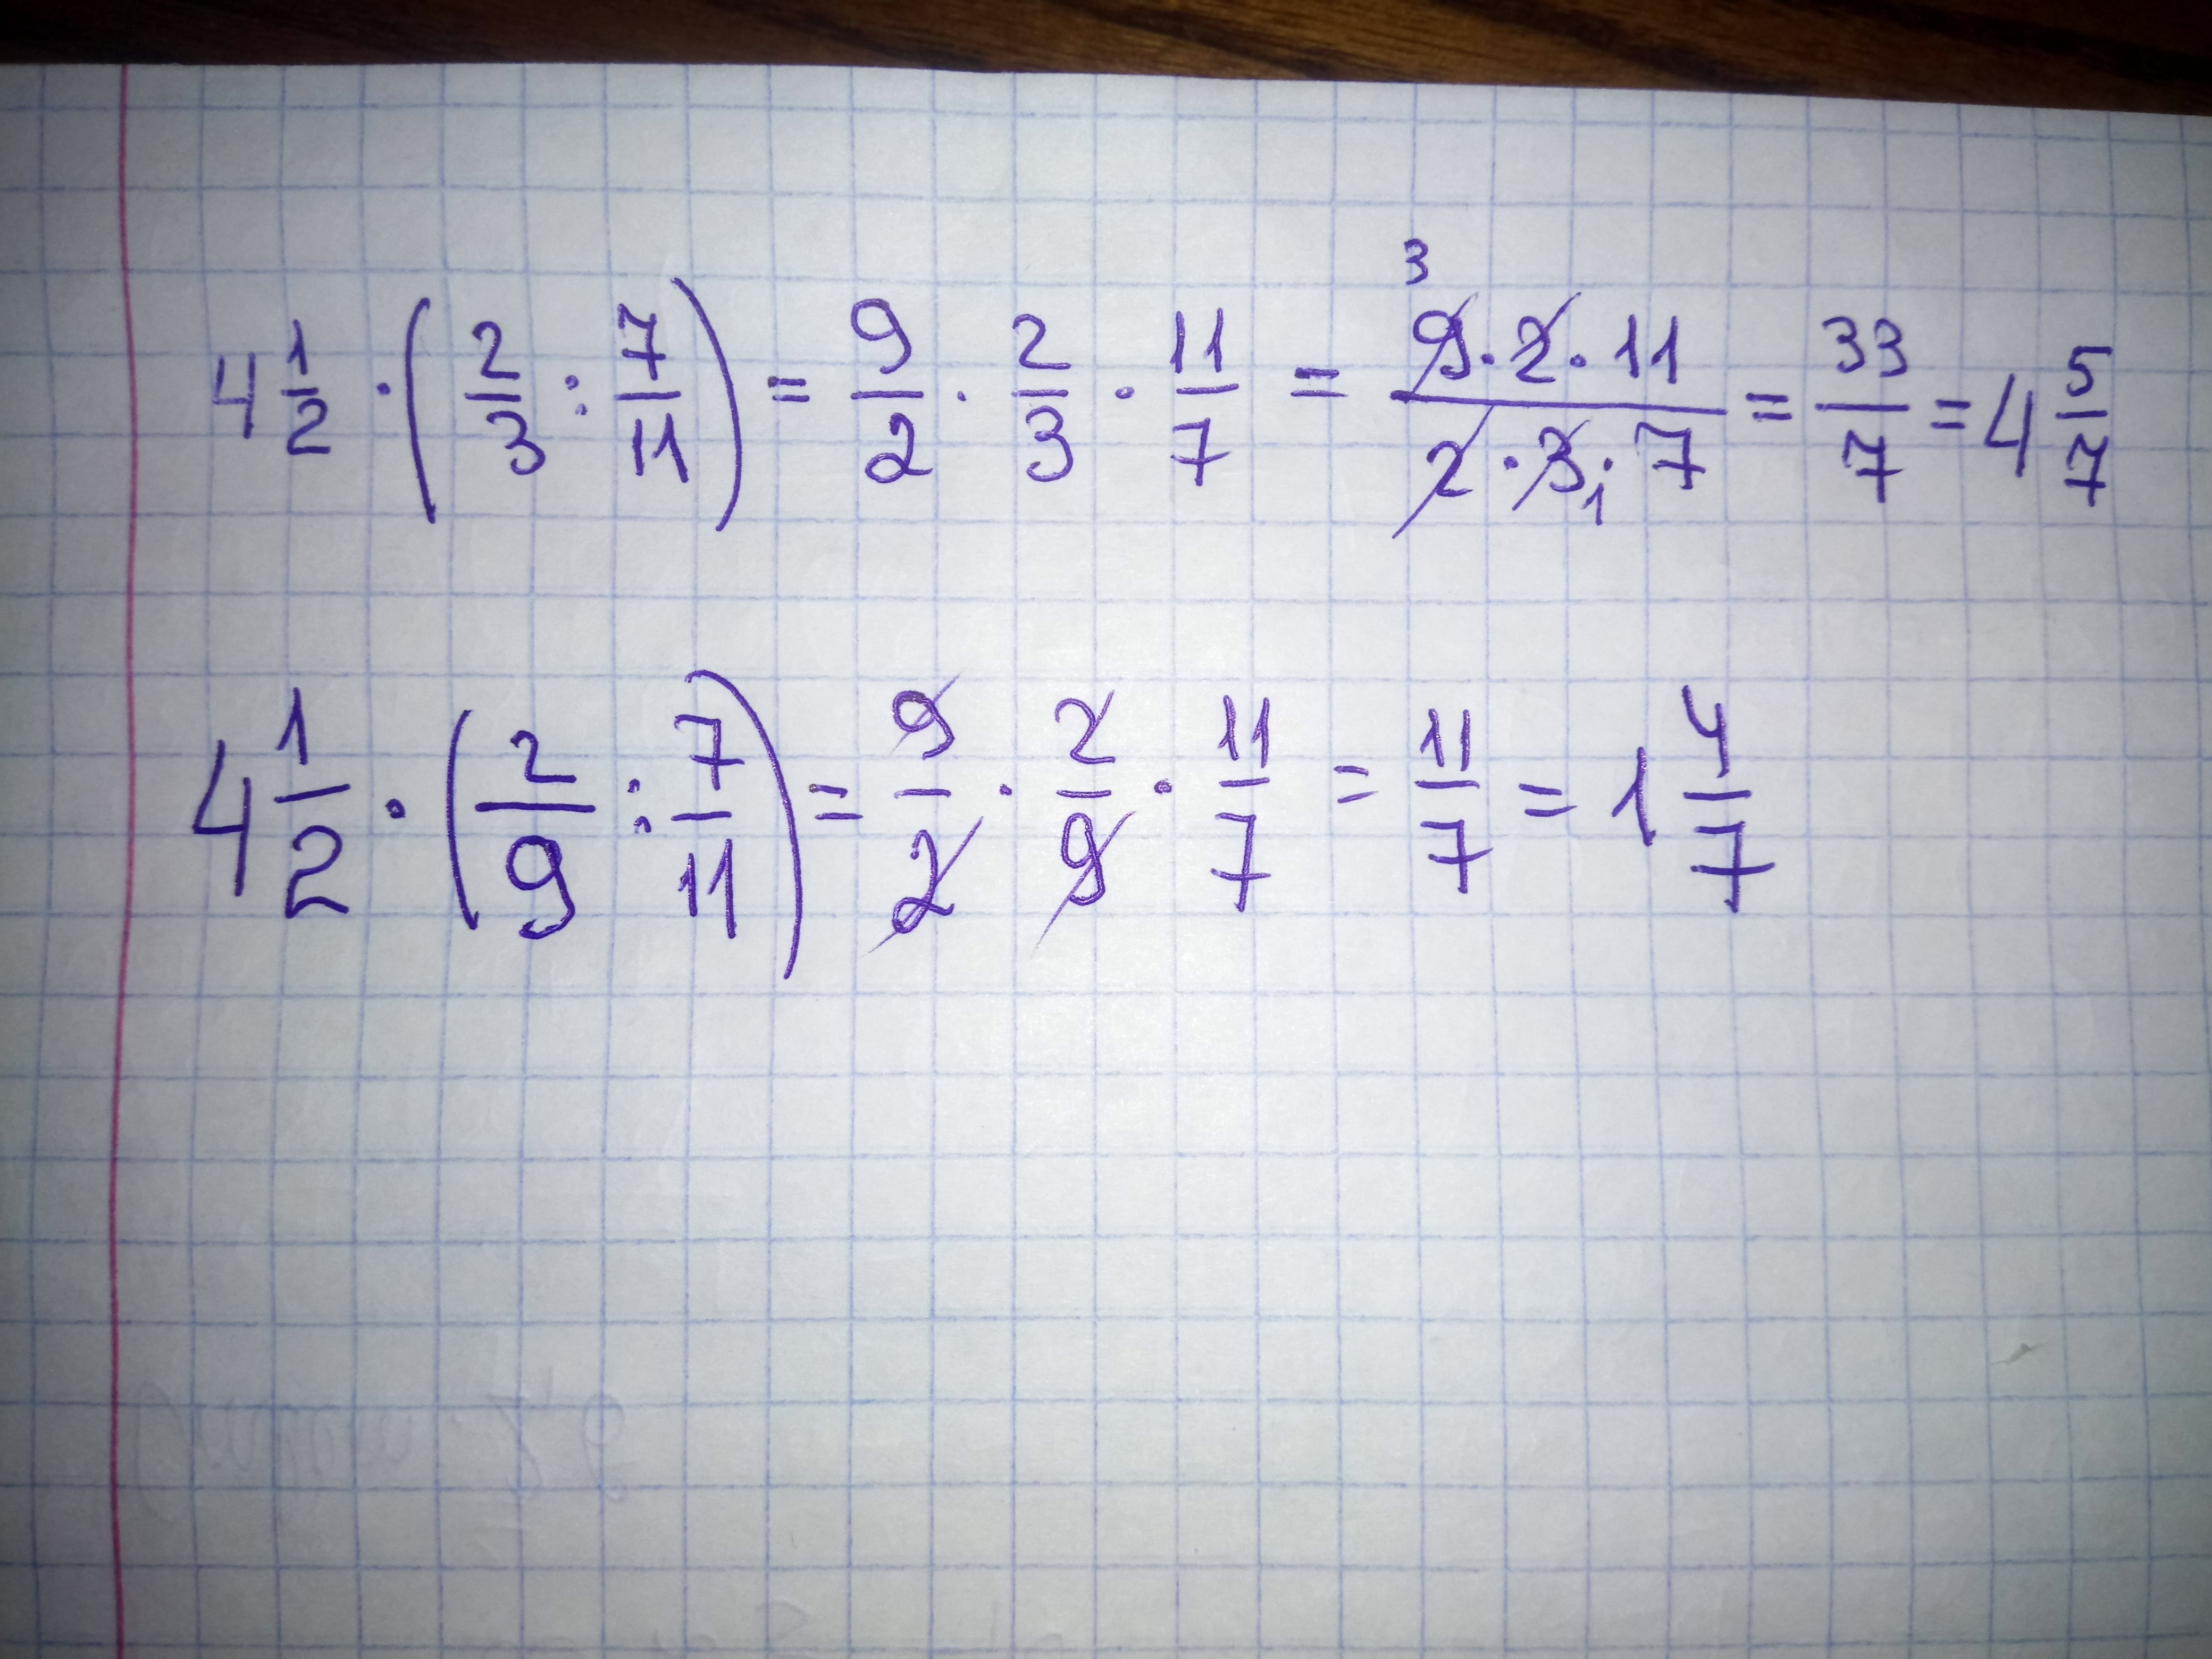 4 1/2 · (2/3 : 7/11) = 9/2 · 2/3 · 11/7 = 3 9·2·11/2·3·7 1 = 33/7 = 4 5/7
4 1/2 · (2/9 : 7/11) = 9/2 · 2/9 · 11/7 = 11/7 = 1 4/7